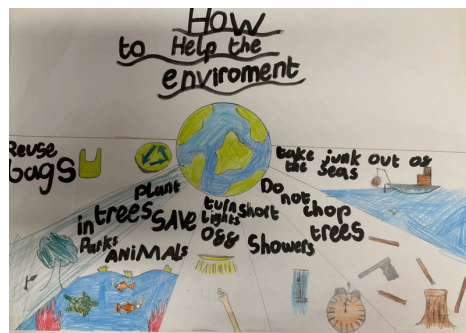 How
to Help the
enviroment
Reuse
bags
plant
trees
in
Parks
SAVE
ANIMALS
turn
lights
off
short
showers
Do
not
chop
trees
take junk out of
the seas